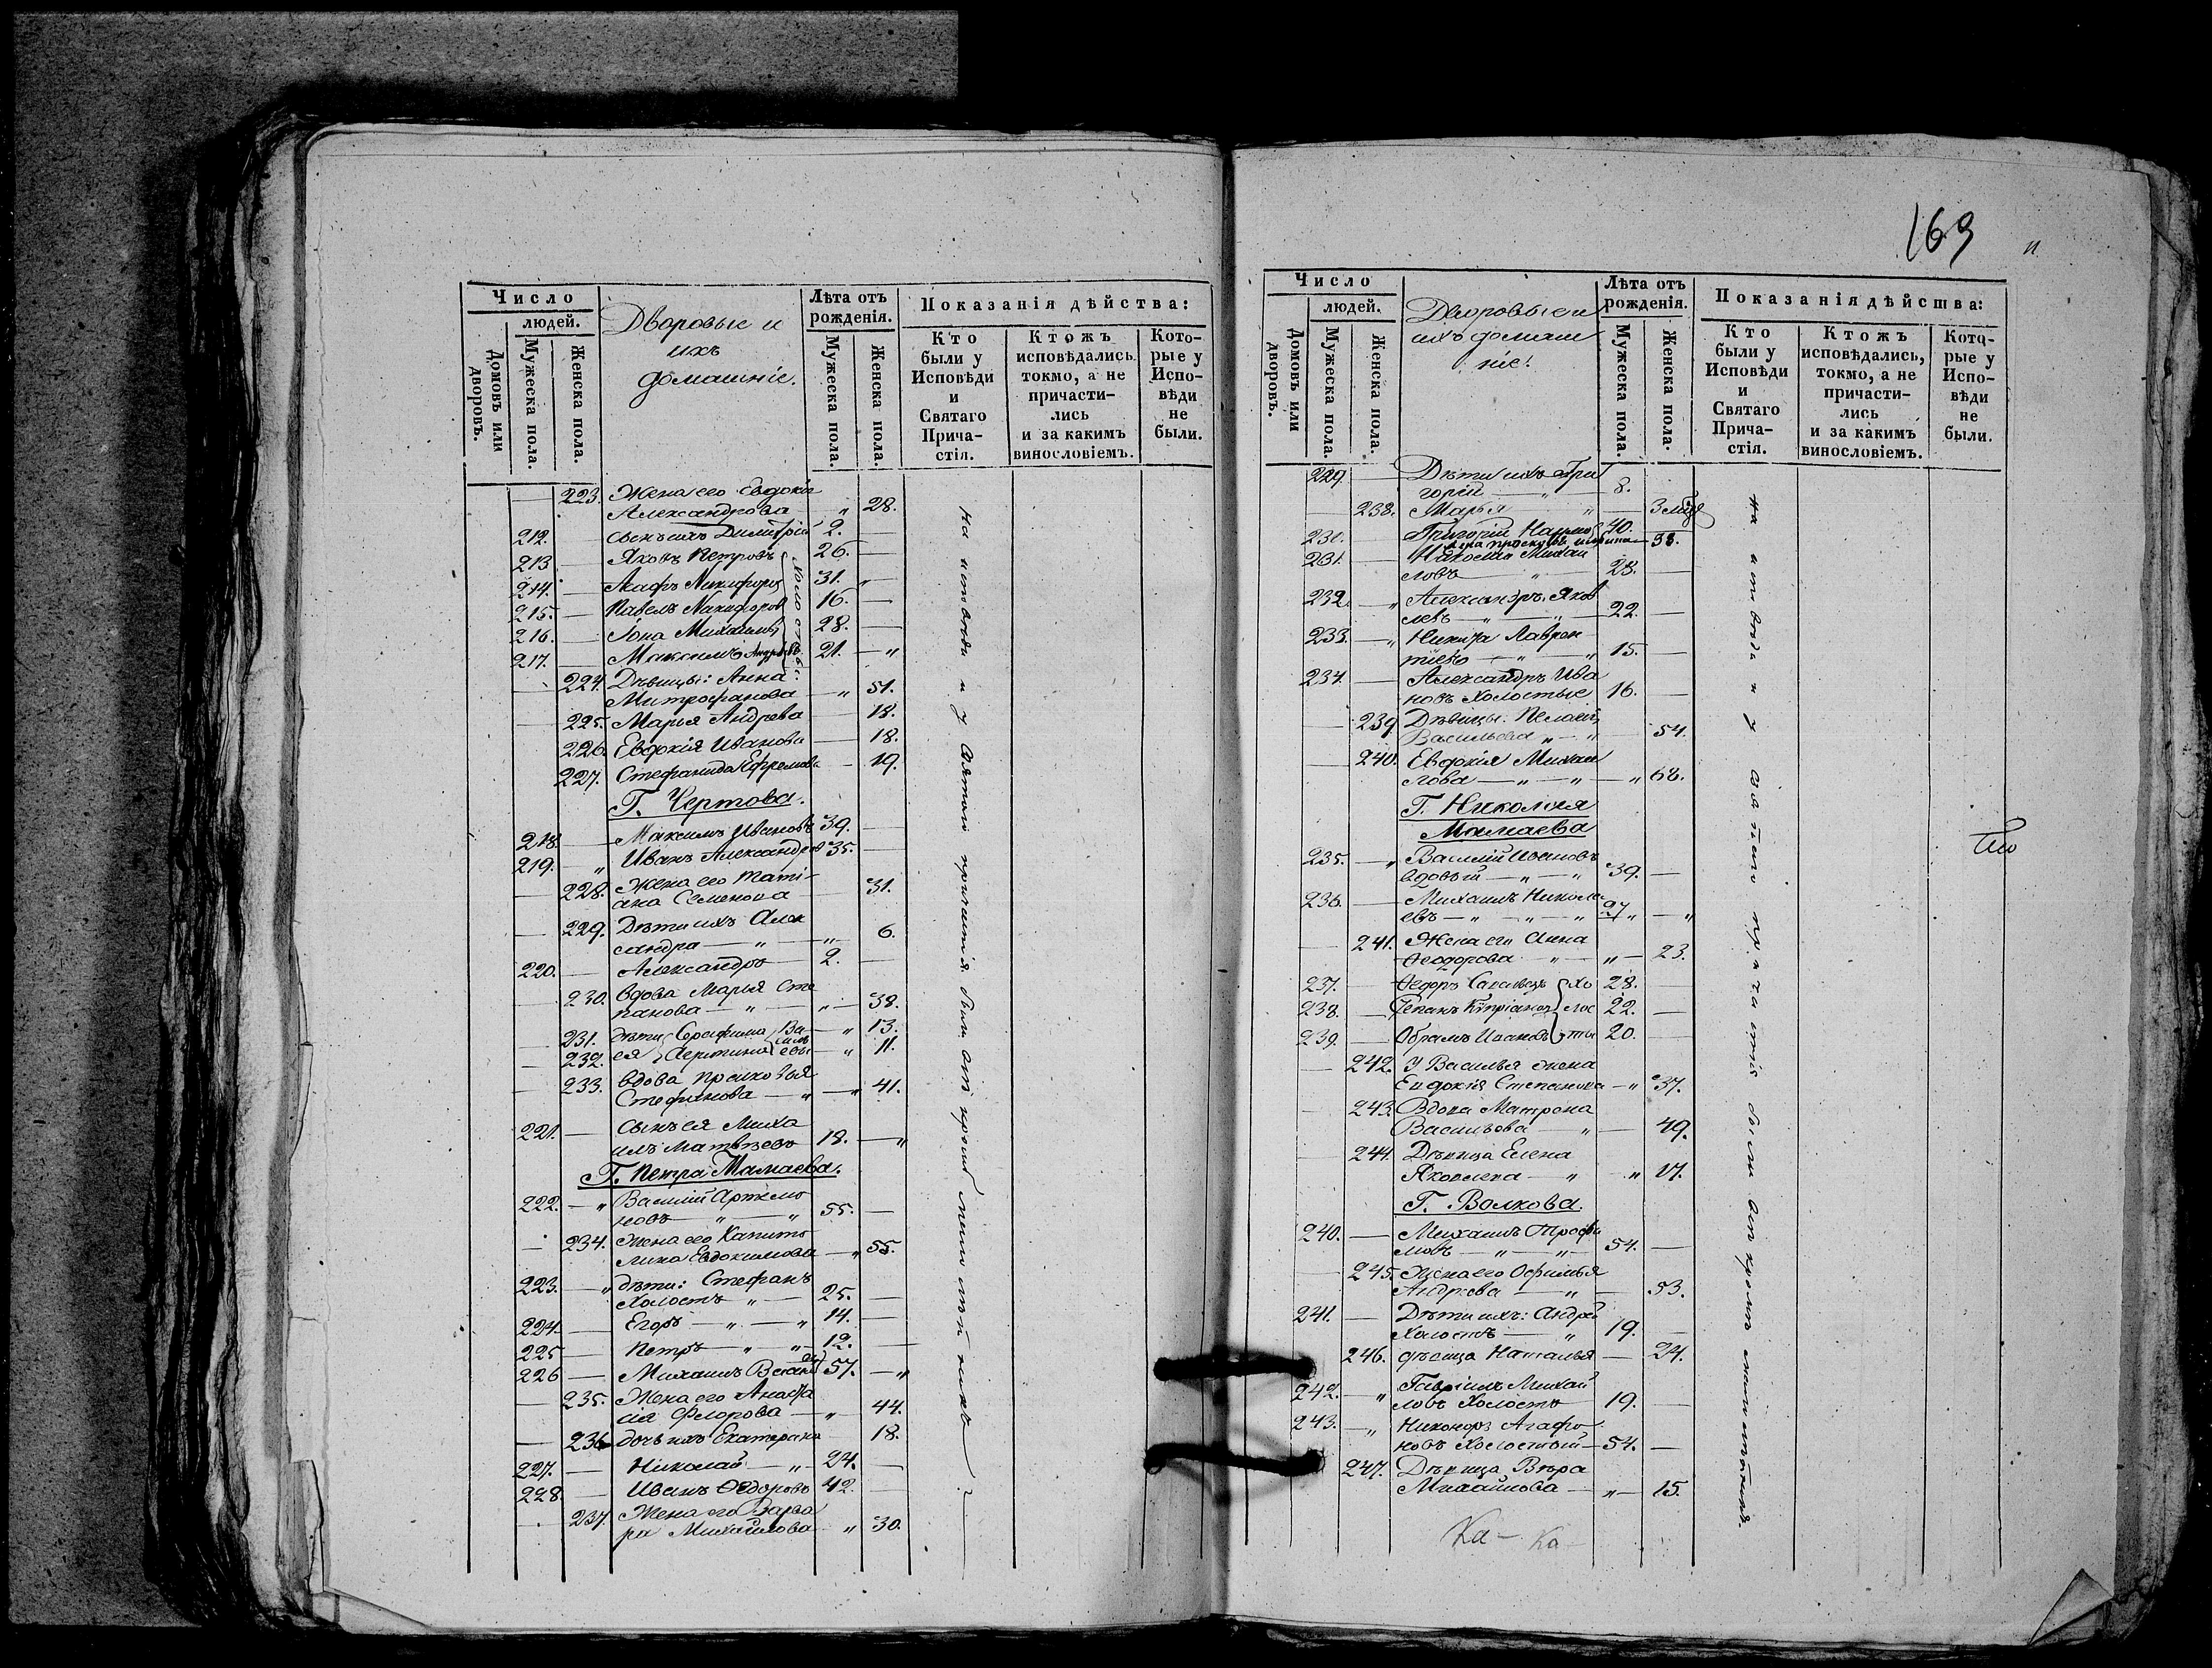 Число
людей.
Домовъ или дворовъ.
Мужеска пола.
Женска пола.
Дворовые и
ихъ
домашніе.
Лѣта отъ рожденія.
Мужеска пола.
Женска пола.
Показанія дѣйства:
Кто были у Исповѣди и Святаго Прича-стія.
Ктожъ исповѣдались токмо, а не причасти-лись и за какимъ винословіемъ.
Кото-рые у Испо-вѣди не были.
223. Жена его Евдокія
Александрова " 28.
212. — сынъ ихъ Димитрій 2. —
213 — Яковъ Петровъ 26. —
214. — Никифоръ 31. "
215. — Павелъ Никифоровъ 16. —
216. — Іона Михайловъ 28. —
217. — Максимъ Андреевъ 21. — "
холостые
224. Дѣвицы: Анна
Митрофанова — " 51.
225. Марья Андрева — 18.
226. Евдокія Иванова — 18.
227. Стефанида Ефремова — 19.
Г. Чертова.
218. — Максимъ Ивановъ 39. —
219. — " Иванъ Александровъ 35. —
228. Жена его Тати-
ана Семенова — 31.
229. Дѣти ихъ Алек
сандра — " — " 6.
220. — Александръ — 2. —
230. вдова Марья Сте
панова — " — " — 38.
231. дѣти Серафима Ва- — " 13.
232. ея силь евы — " 11.
233. вдова Прасковья
Стефанова — " — " 41.
221. — Сынъ ея Миха
илъ Матвѣевъ 18. — "
Г. Петра Мамаева.
222. — " Василій Артемо
новъ — " — " 55. —
234. Жена его Капито
лина Евдокимова — " 55.
223. — " дѣти: Стефанъ
Холостъ " — 25. —
224. — Егоръ — " — " 14. —
225 — Петръ — " " — 12. —
226 — Михаилъ 57. — "
235. Жена его Анаста
сія Флорова — " 44.
236 дочь ихъ Екатерина 18.
227. — Николай — " — 24. —
228. — Иванъ Ѳедоровъ 42. —
237. Жена его Варва
ра Михайлова — " 30.
На исповѣди и у Святаго причастія были всѣ кромѣ
169
Число
людей.
Домовъ или дворовъ.
Мужеска пола.
Женска пола.
Дворовые и
ихъ домаш
ніе.
Лѣта отъ рожденія.
Мужеска пола.
Женска пола.
Показанія дѣйства:
Кто были у Исповѣди и Святаго Прича-стія.
Ктожъ исповѣдались, токмо, а не причасти-лись и за какимъ винословіемъ.
Кото-рые у Испо-вѣди не были.
229. Дѣти ихъ Гри
горій — " — 8.
238. Марья " —
230. Григорій 40. —
231. Николай Михаи
ловъ — " — 28. —
232. — " Александръ Яков
левъ — " — " — 22. —
233. — " Никита Лаврен
тьевъ — " — " 15. —
234. — Александръ Ива
новъ Холостые 16. —
239. Дѣвицы: Пелагія
Васильева " — " 54.
240. Евдокія Михаи
лова — " — " — " 68.
Г. Николая
Мамаева
235. — " Василій Ивановъ
вдовый — " — " 39. —
236. — Михаилъ Никола
евъ — " — " — " 27 " — "
241. Жена его Анна
Ѳеодорова " — " — 23.
237. — Ѳедоръ Савельевъ хо 28. —
238. — Степанъ Купріановъ лос 22. —
239. — Абрамъ Ивановъ ты 20. —
242. У Василья жена
Евдокія Степанова — " 37.
243. Вдова Матрона
Васильева — " — 49.
244. Дѣвица Елена
Яковлева — " " 17.
Г. Волкова.
240. — Михаилъ Трофи
мовъ — " — " — 54. —
245. Жена его Офимья
Андрева — " — 53.
241. — Дѣти ихъ: Андрей
Холостъ — " 19. —
246. дѣвица Наталья — 24.
242. — " Гавріилъ Михай
ловъ Холостъ 19. —
243. — " Никоноръ Агафо
новъ Холостый — 54. —
247. Дѣвица Вѣра
Михайлова — " — 15.
на исповѣди и у святаго причастія были всѣ кромѣ
Ка- Ка-